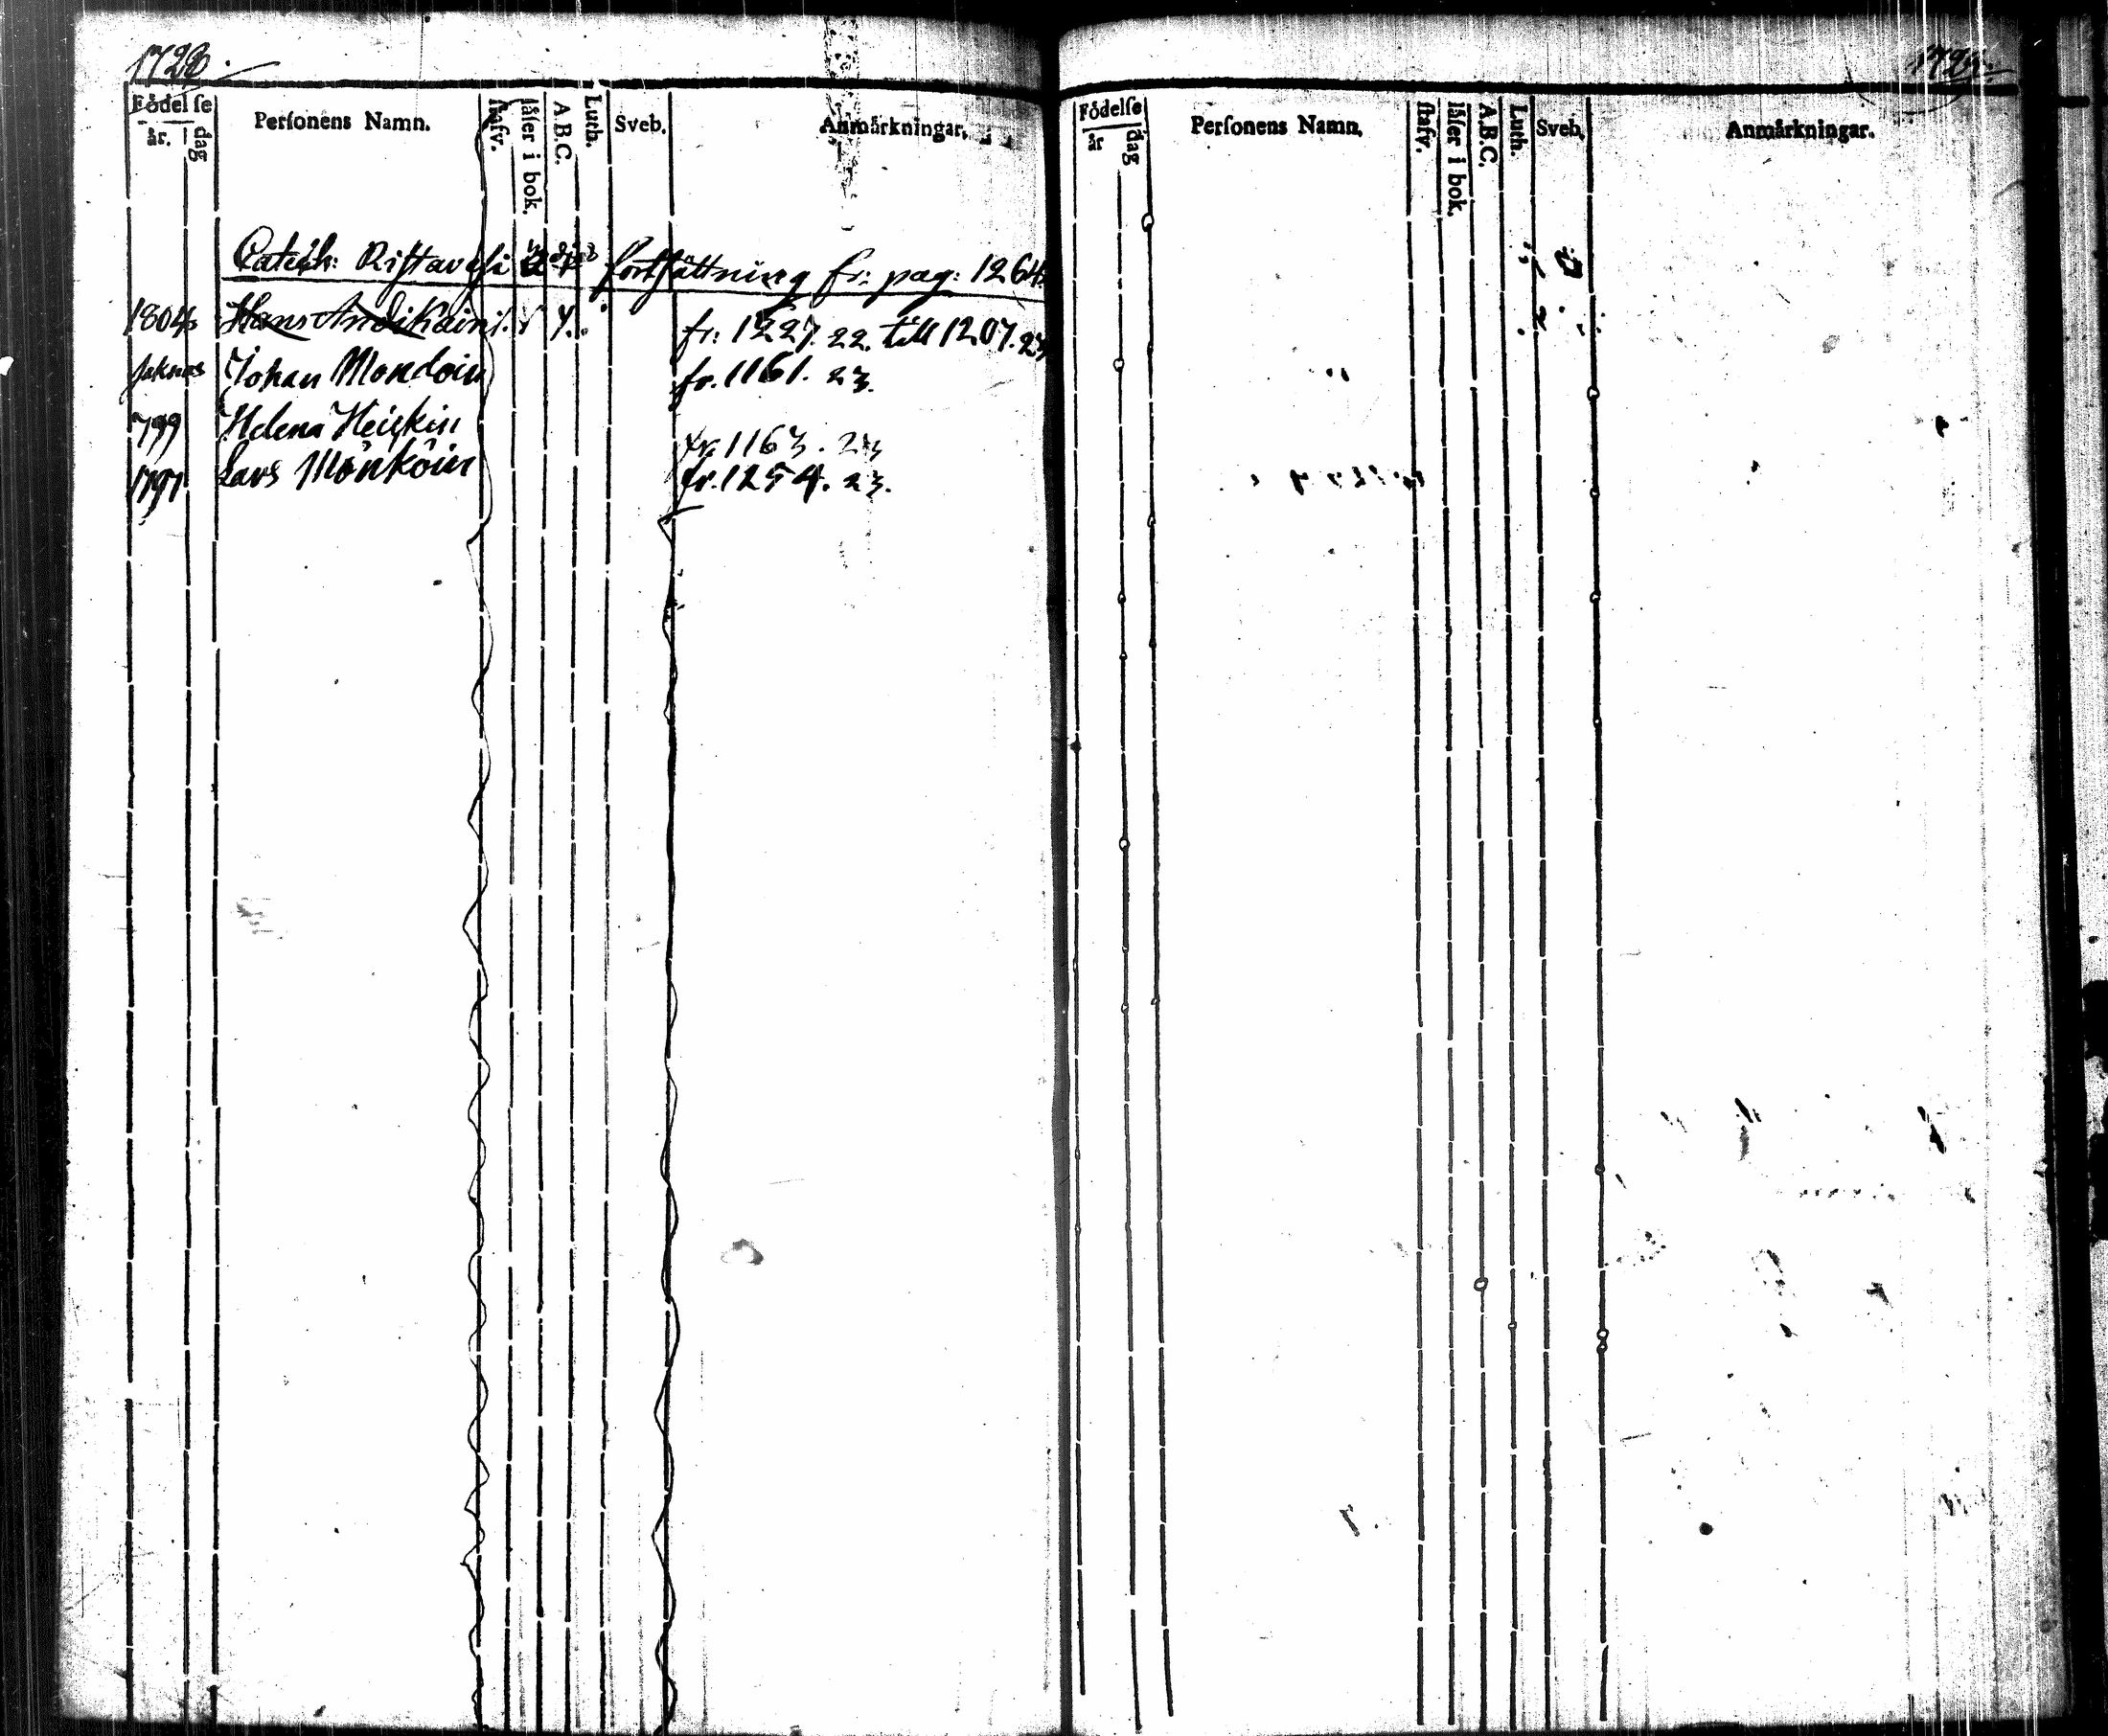 1728.
Födelſe
år. dag
Perſonens Namn.
ſtafv.
låſer i bok.
A.B.C.
Luth.
Sveb.
Anmärkningar.
Catech: Riſtaveſi fortſättning fr: pag: 1264.
1804 Hans Andikain fr: 1227. 22. till 1207. 23
ſaknas Johan Mondoin fr. 1161. 23.
799 Helena Heiſkin fr. 1163. 23
1797 Lars Mönköin fr. 1254. 23.
Födelſe
år dag
Perſonens Namn.
ſtafv.
låſer i bok.
A.B.C.
Luth.
Sveb.
Anmärkningar.